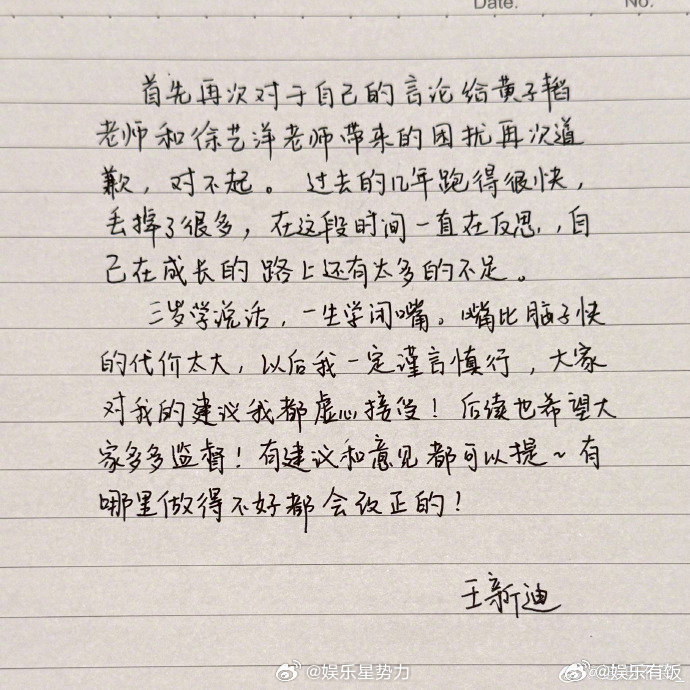 Date.
No.
首先再次对于自己的言论给黄子韬
老师和徐艺洋老师带来的困扰再次道
歉，对不起。过去的几年跑得很快，
丢掉了很多，在这段时间一直在反思，自
己在成长的路上还有太多的不足。
三岁学说话，一生学闭嘴。嘴比脑子快
的代价太大，以后我一定谨言慎行，大家
对我的建议我都虚心接受！后续也希望大
家多多监督！有建议和意见都可以提~有
哪里做得不好都会改正的！
王新迪
@娱乐星势力
@娱乐有饭